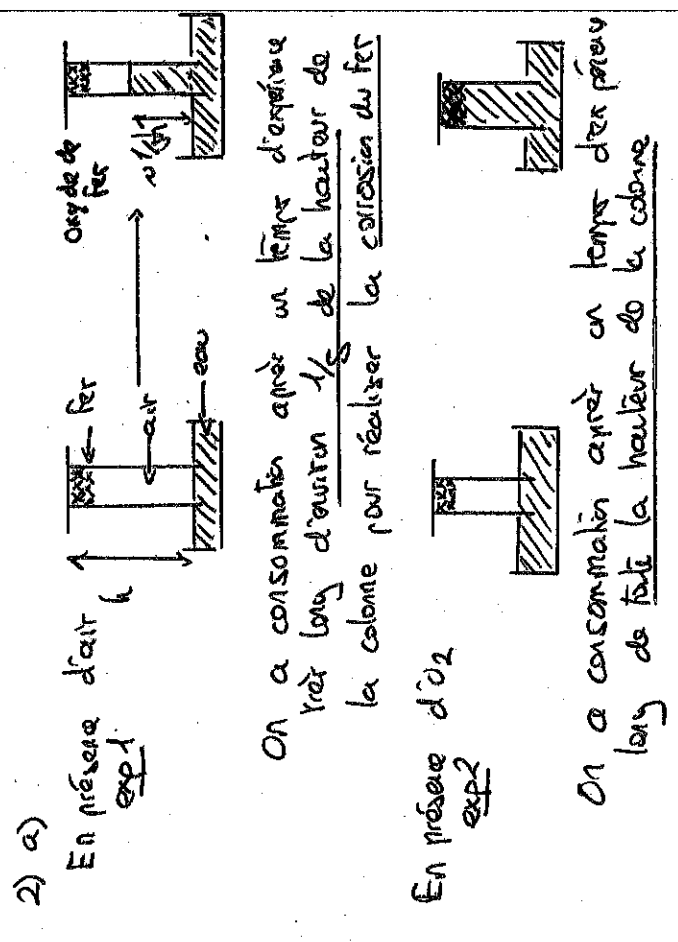 2) a)
En présence d'air
exp 1
h
fer
air
eau
oxyde de
fer
~ 1/5 h
On a consommation après un temps d'expérience
très long d'environ 1/5 de la hauteur de
la colonne pour réaliser la corrosion du fer
En présence d'O2
exp2
On a consommation après un temps d'expérience
long de toute la hauteur de la colonne